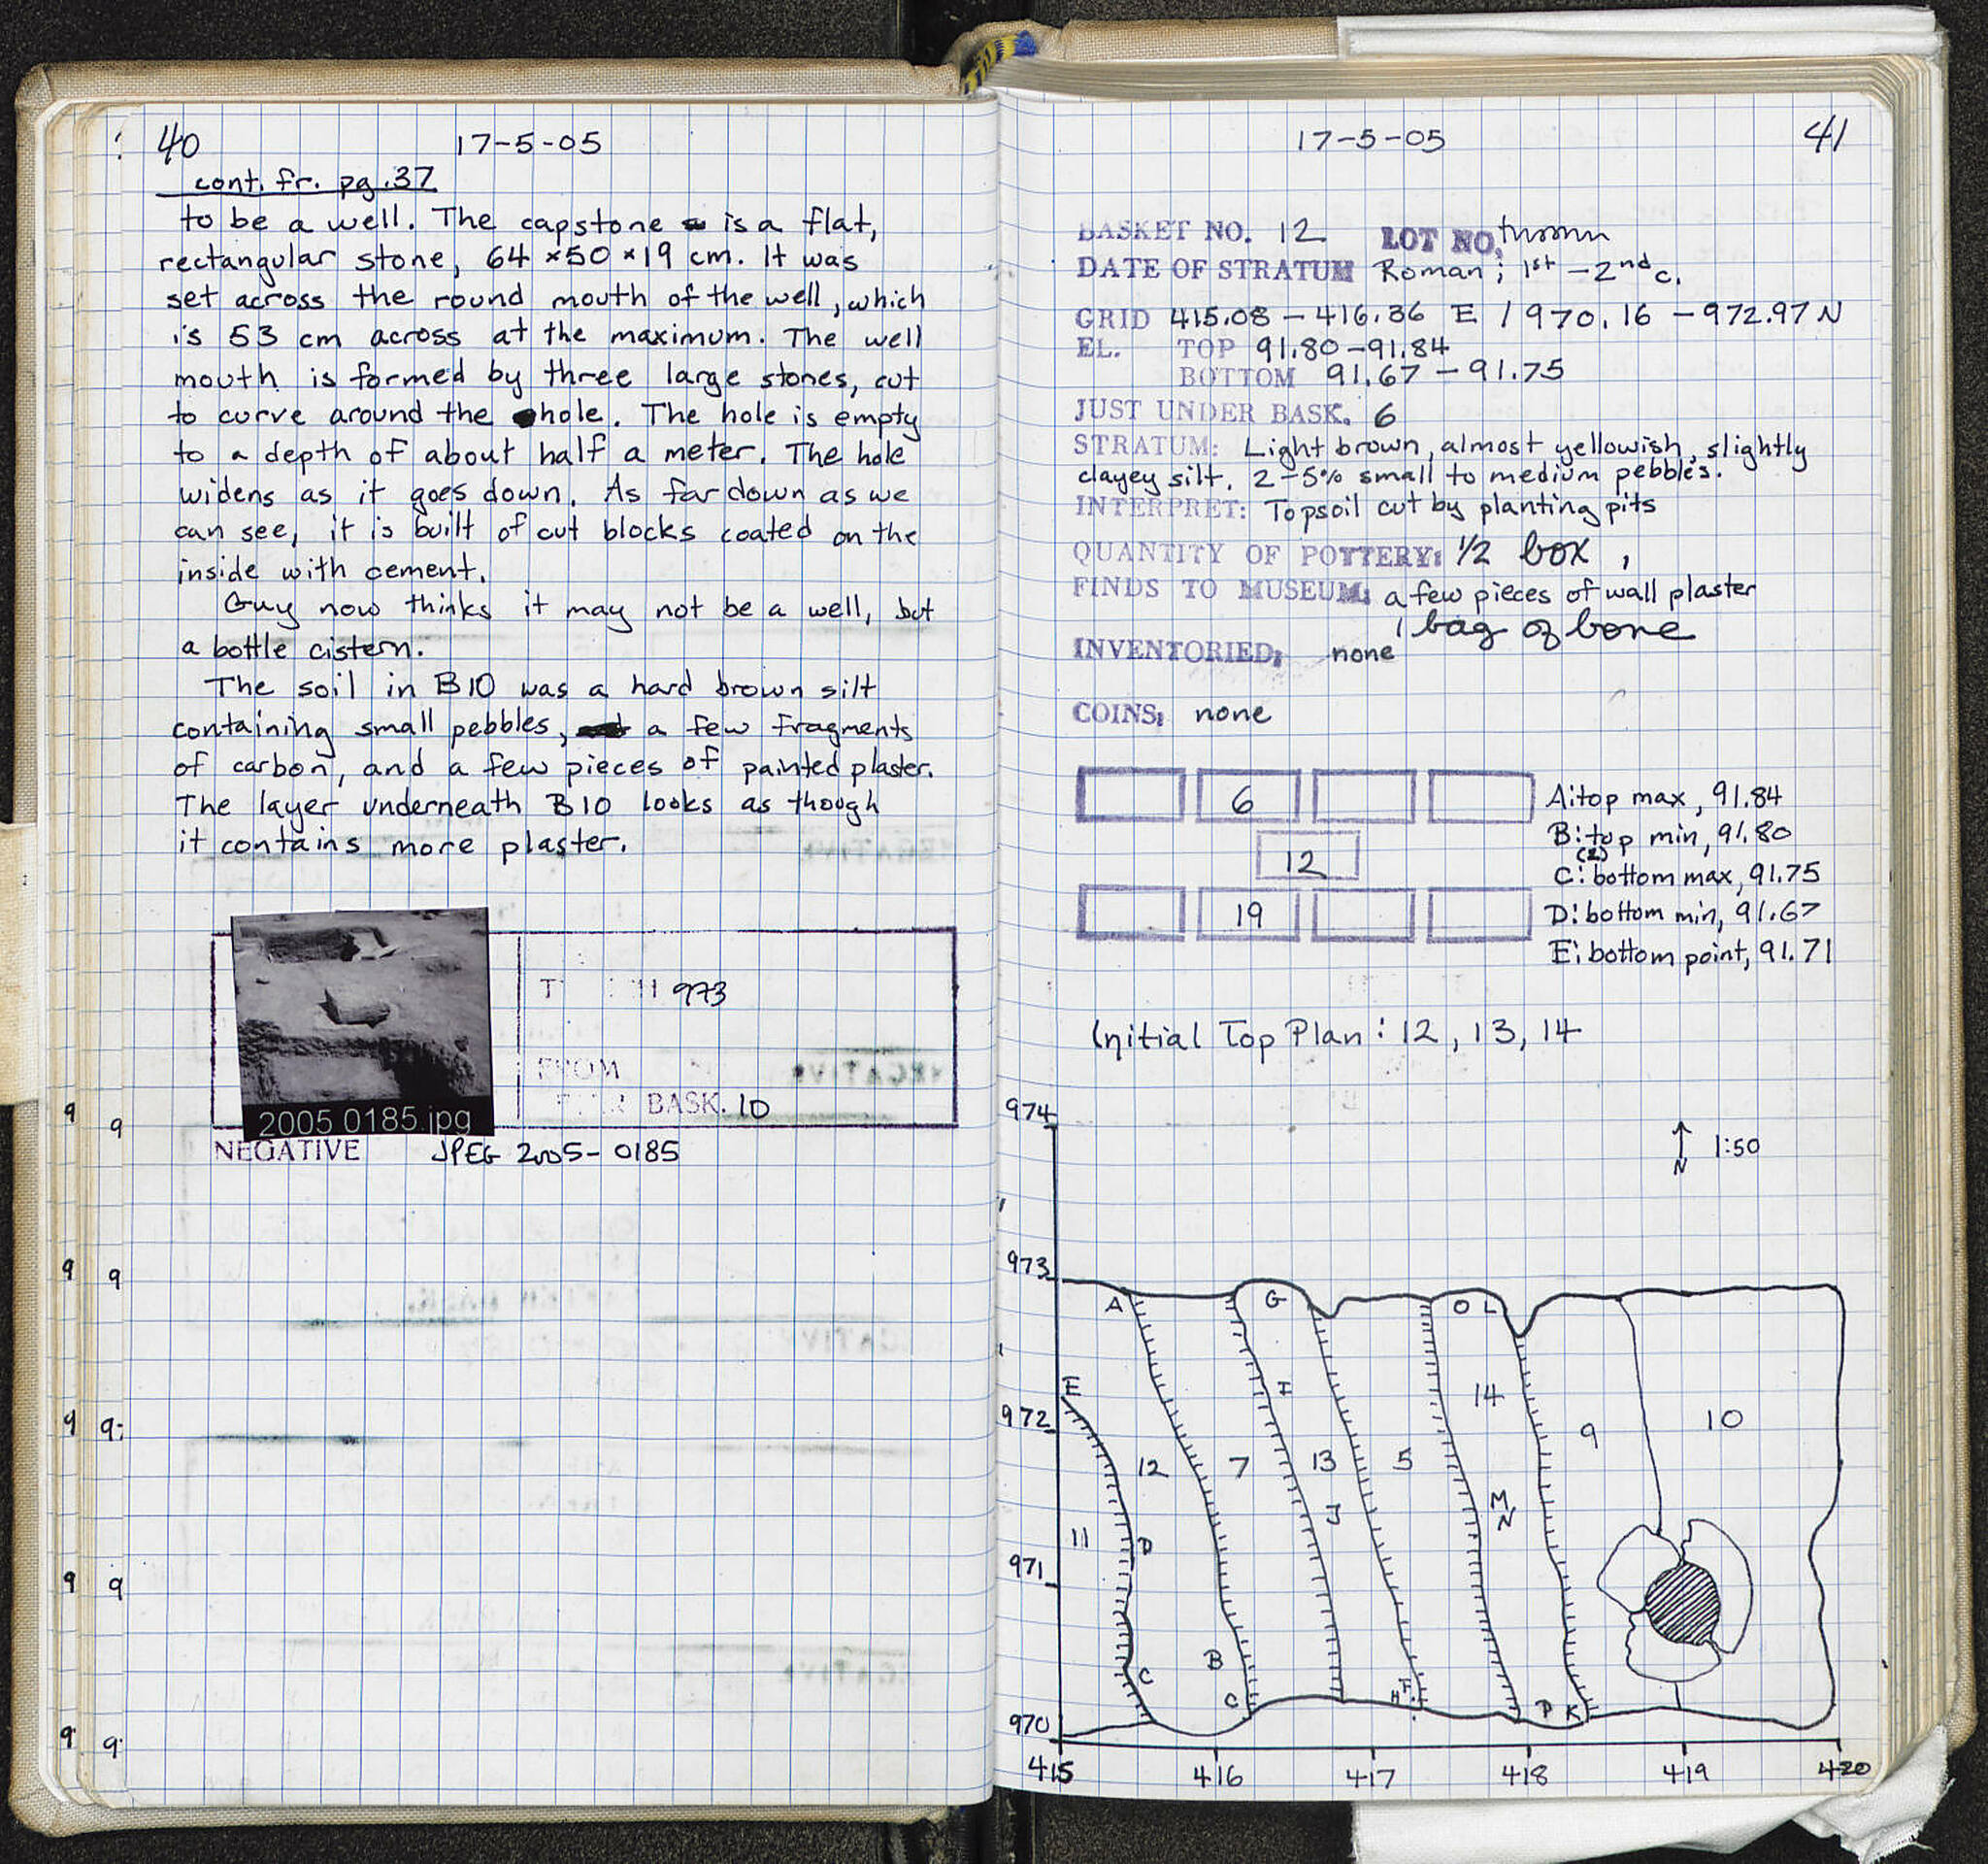 40 17-5-05
cont. fr. pg. 37
to be a well. The capstone is a flat,
rectangular stone, 64 x50 x19 cm. It was
set across the round mouth of the well, which
is 53 cm across at the maximum. The well
mouth is formed by three large stones, cut
to curve around the hole. The hole is empty
to a depth of about half a meter. The hole
widens as it goes down. As far down as we
can see, it is built of cut blocks coated on the
inside with cement.
Guy now thinks it may not be a well, but
a bottle cistern.
The soil in B10 was a hard brown silt
containing small pebbles, a few fragments
of carbon, and a few pieces of painted plaster.
The layer underneath B10 looks as though
it contains more plaster.
973
FROM
BASK. 10
2005 0185.jpg
NEGATIVE JPEG 2005-0185
9 9
9 9
9 9:
9 9
9 9
17-5-05 41
BASKET NO. 12 LOT NO.
DATE OF STRATUM Roman; 1st - 2nd c.
GRID 415.08 - 416.36 E / 970.16 - 972.97 N
EL. TOP 91.80-91.84
BOTTOM 91.67 - 91.75
JUST UNDER BASK. 6
STRATUM: Light brown, almost yellowish, slightly
clayey silt. 2-5% small to medium pebbles.
INTERPRET: Topsoil cut by planting pits
QUANTITY OF POTTERY: 1/2 box,
FINDS TO MUSEUM: a few pieces of wall plaster
1 bag of bone
INVENTORIED: none
COINS: none
6
12
19
A: top max, 91.84
B: top min, 91.80
(2)
C: bottom max, 91.75
D: bottom min, 91.67
E: bottom point, 91.71
Initial Top Plan: 12, 13, 14
974
N 1:50
973
A G O L
E I
972
14 9 10
12 7 13 5
J M N
11 D
971
C B C H F P K
970
415 416 417 418 419 420